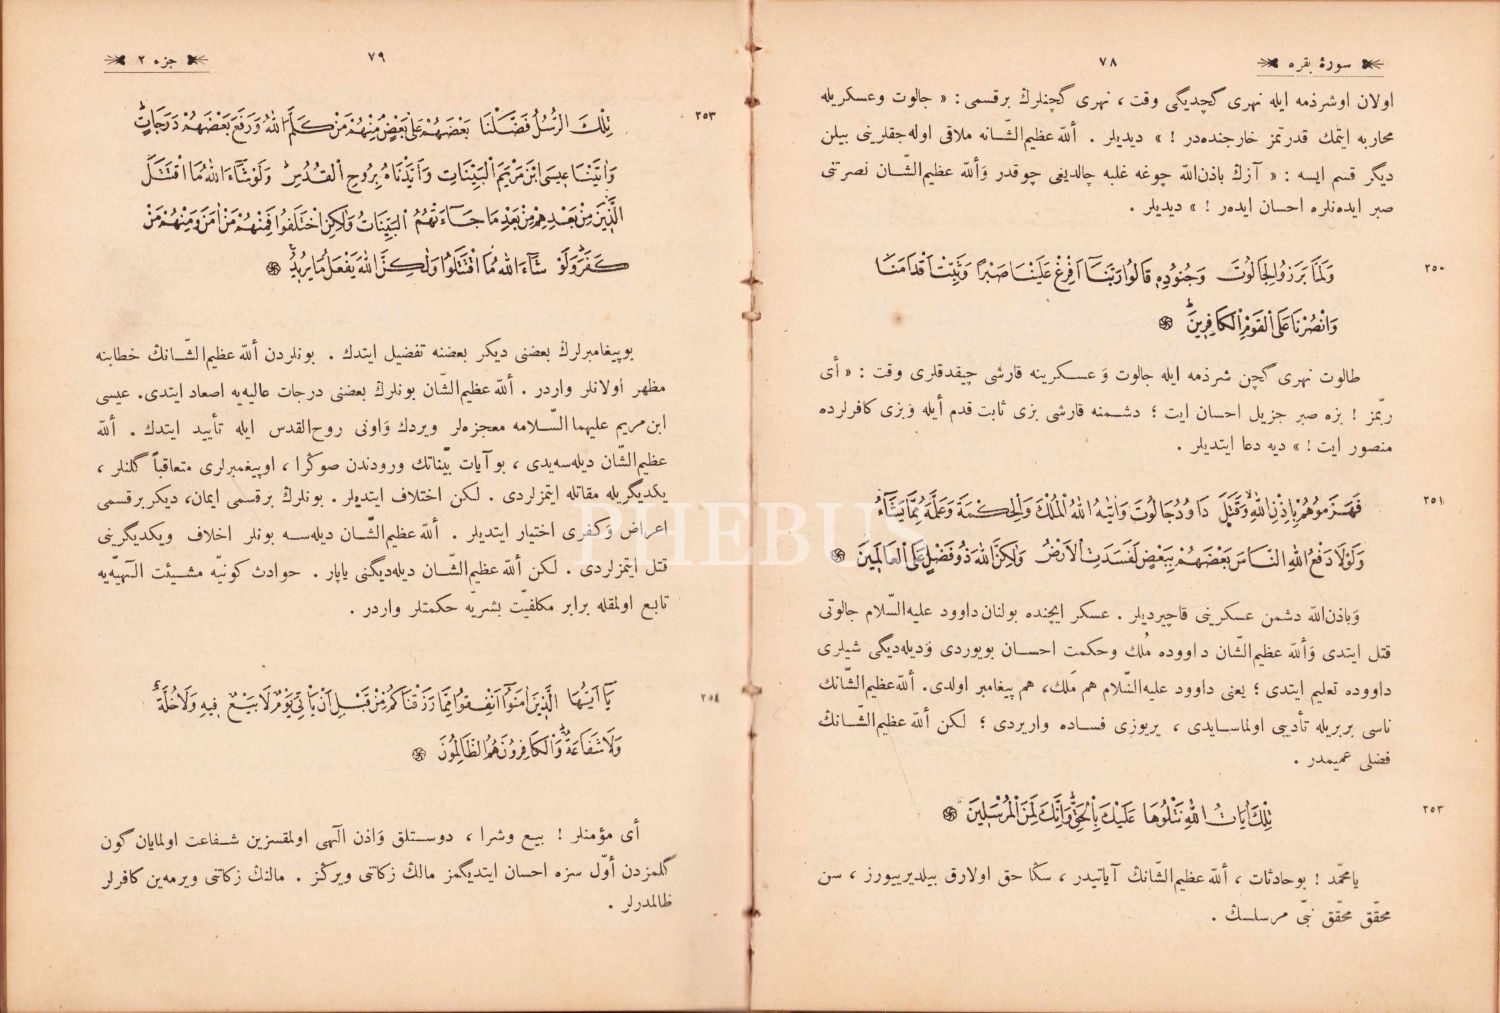 سورۀ بقره
٧٨
اولان اوشرذمه ایله نهری گچدیگی وقت ، نهری گچنلرڭ برقسمی : « جالوت وعسكریله
محاربه ایتمك قدرتمز خارجنده‌در ! » دیدیلر . ألله عظیم‌الشّانه ملاقی اوله‌جقلرینی بیلن
دیگر قسم ایسه : « آزڭ باذن‌الله چوغه غلبه چالدیغی چوقدر وَألله عظیم‌الشّان نصرتنی
صبر ایده‌نلره احسان ایده‌ر ! » دیدیلر .
٢٥٠
وَلَمَّا بَرَزُوا لِجَالُوتَ وَجُنُودِهِ قَالُوا رَبَّنَٓا اَفْرِغْ عَلَيْنَا صَبْرًا وَثَبِّتْ اَقْدَامَنَا
وَانْصُرْنَا عَلَى الْقَوْمِ الْكَافِرِينَ
طالوت نهری گچن شرذمه ایله جالوت وَعسكرینه قارشی چیقدقلری وقت : « أی
ربّمز ! بزه صبر جزیل احسان ایت ؛ دشمنه قارشی بزی ثابت قدم أیله وَبزی كافرلرده
منصور ایت ! » دیه دعا ایتدیلر .
٢٥١
فَهَزَمُوهُمْ بِاِذْنِ اللّٰهِ وَقَتَلَ دَاوُدُ جَالُوتَ وَاٰتٰيهُ اللّٰهُ الْمُلْكَ وَالْحِكْمَةَ وَعَلَّمَهُ مِمَّا يَشَٓاءُ
وَلَوْلَا دَفْعُ اللّٰهِ النَّاسَ بَعْضَهُمْ بِبَعْضٍ لَفَسَدَتِ الْاَرْضُ وَلٰكِنَّ اللّٰهَ ذُو فَضْلٍ عَلَى الْعَالَمِينَ
وَباذن‌الله دشمن عسكرینی قاچیردیلر . عسكر ایچنده بولنان داوود علیه‌السّلام جالوتی
قتل ایتدی وَألله عظیم‌الشّان داووده مُلك وحكمت احسان بویوردی وَدیله‌دیگی شیلری
داووده تعلیم ایتدی ؛ یعنی داوود علیه‌السّلام هم مَلك، هم پیغامبر اولدی. ألله‌عظیم‌الشّانڭ
ناسی بربریله تأدیبی اولماسایدی ، یریوزی فساده واریردی ؛ لكن ألله عظیم‌الشّانڭ
فضلی عمیمدر .
٢٥٣
تِلْكَ اٰيَاتُ اللّٰهِ نَتْلُوهَا عَلَيْكَ بِالْحَقِّ وَاِنَّكَ لَمِنَ الْمُرْسَلِينَ
یامحمّد ! بوحادثات ، ألله عظیم‌الشّانڭ آیاتیدر ، سڭا حق اولارق بیلدیرییورز ، سن
محقّق محقّق نبیّ مرسلسڭ .
جزء ٢
٧٩
٢٥٣
تِلْكَ الرُّسُلُ فَضَّلْنَا بَعْضَهُمْ عَلٰى بَعْضٍ مِنْهُمْ مَنْ كَلَّمَ اللّٰهُ وَرَفَعَ بَعْضَهُمْ دَرَجَاتٍ
وَاٰتَيْنَا عِيسَى ابْنَ مَرْيَمَ الْبَيِّنَاتِ وَاَيَّدْنَاهُ بِرُوحِ الْقُدُسِ وَلَوْ شَٓاءَ اللّٰهُ مَا اقْتَتَلَ
الَّذِينَ مِنْ بَعْدِهِمْ مِنْ بَعْدِ مَا جَٓاءَتْهُمُ الْبَيِّنَاتُ وَلٰكِنِ اخْتَلَفُوا فَمِنْهُمْ مَنْ اٰمَنَ وَمِنْهُمْ مَنْ
كَفَرَ وَلَوْ شَٓاءَ اللّٰهُ مَا اقْتَتَلُوا وَلٰكِنَّ اللّٰهَ يَفْعَلُ مَا يُرِيدُ
بوپیغامبرلرڭ بعضنی دیكر بعضنه تفضیل ایتدك . بونلردن ألله عظیم‌الشّانڭ خطابنه
مظهر اولانلر واردر . ألله عظیم‌الشّان بونلرڭ بعضنی درجات عالیه‌یه اصعاد ایتدی. عیسی
ابن‌مریم علیهماالسّلامه معجزه‌لر ویردك وَاونی روح‌القدس ایله تأیید ایتدك . ألله
عظیم‌الشّان دیله‌سه‌یدی ، بوآیات بیّناتك ورودندن صوڭرا ، اوپیغمبرلری متعاقباً گلنلر ،
یكدیگریله مقاتله ایتمزلردی . لكن اختلاف ایتدیلر . بونلرڭ برقسمی ایمان، دیكربرقسمی
اعراض وَكفری اختیار ایتدیلر . ألله عظیم‌الشّان دیله‌سه بونلر اخلاف ویكدیگرینی
قتل ایتمزلردی . لكن ألله عظیم‌الشّان دیله‌دیگنی یاپار . حوادث كونیّه مشیئت الٓهیّه‌یه
تابع اولمقله برابر مكلفیّت بشریّه حكمتلر واردر .
٢٥٤
يَٓا اَيُّهَا الَّذِينَ اٰمَنُٓوا اَنْفِقُوا مِمَّا رَزَقْنَاكُمْ مِنْ قَبْلِ اَنْ يَأْتِيَ يَوْمٌ لَا بَيْعٌ فِيهِ وَلَا خُلَّةٌ
وَلَا شَفَاعَةٌ وَالْكَافِرُونَ هُمُ الظَّالِمُونَ
أی مؤمنلر ! بیع وشرا ، دوستلق وَاذن الٓهی اولمقسزین شفاعت اولمایان گون
گلمزدن أوّل سزه احسان ایتدیگمز مالڭ زكاتنی ویرڭز . مالنڭ زكاتنی ویرمه‌ین كافرلر
ظالمدرلر .
PHEBUS